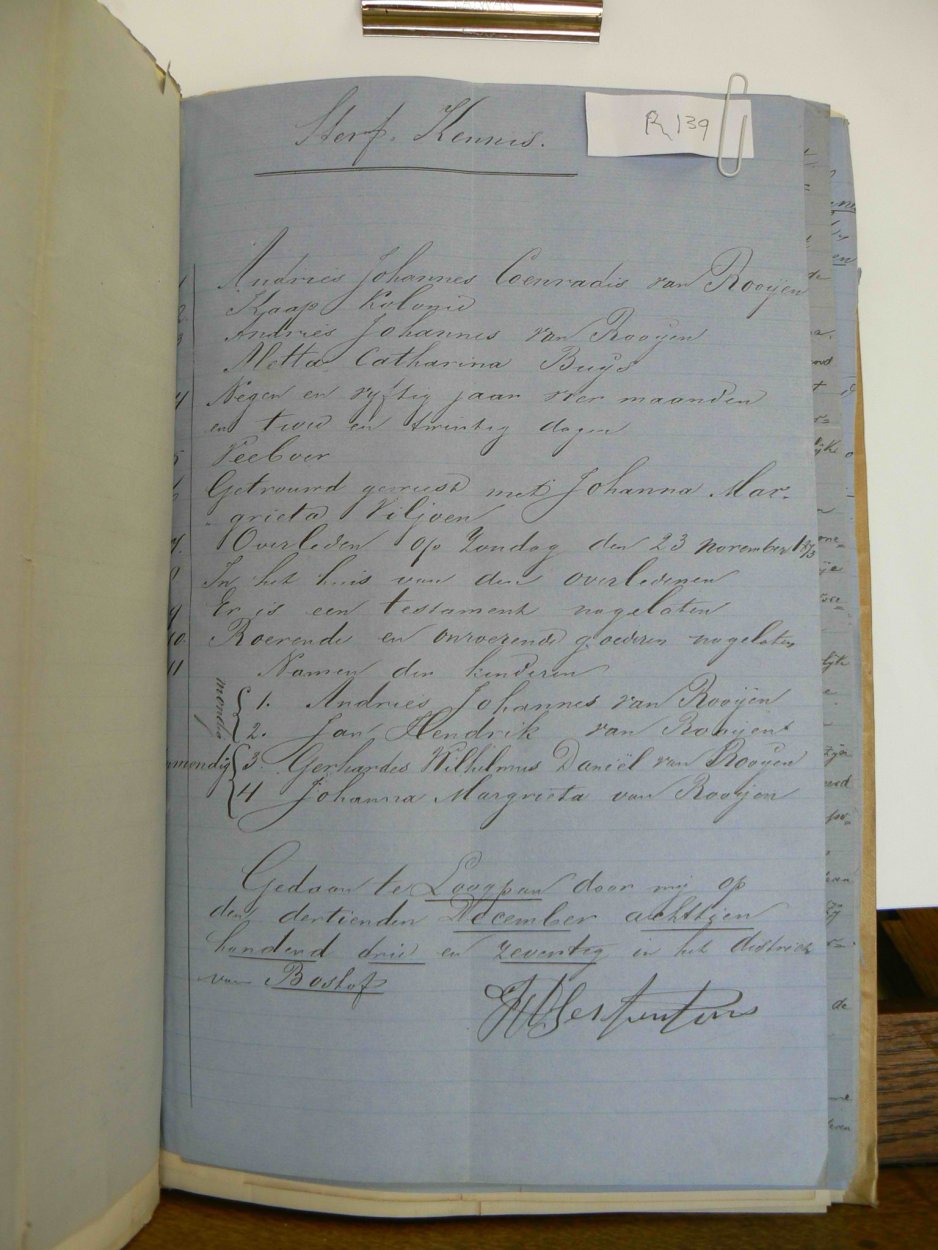 R 139
Sterf. Kennis.
1 Andries Johannes Coenradis van Rooijen
2 Kaap Kolonie
3 Andries Johannes van Rooyen
Metta Catharina Buys
4 Negen en vyftig jaar vier maanden
en twee en twintig dagen
5 Veeboer
6 Getrouwd geweest met Johanna Mar-
grieta Viljoen
7. Overleden op Zondag den 23 November 1873
8 In het huis van den overledenen
9 Er is een testament nagelaten
10 Roerende en onroerende goederen nagelaten
11 Namen der kinderen
1. Andries Johannes van Rooÿen
2. Jan Hendrik van Rooijen
3. Gerhardes Wilhelmus Daniël van Rooyen
4 Johanna Margrieta van Rooyen
Gedaan te door my op
den dertienden December achttien
honderd drie en zeventig in het district
van Boshof